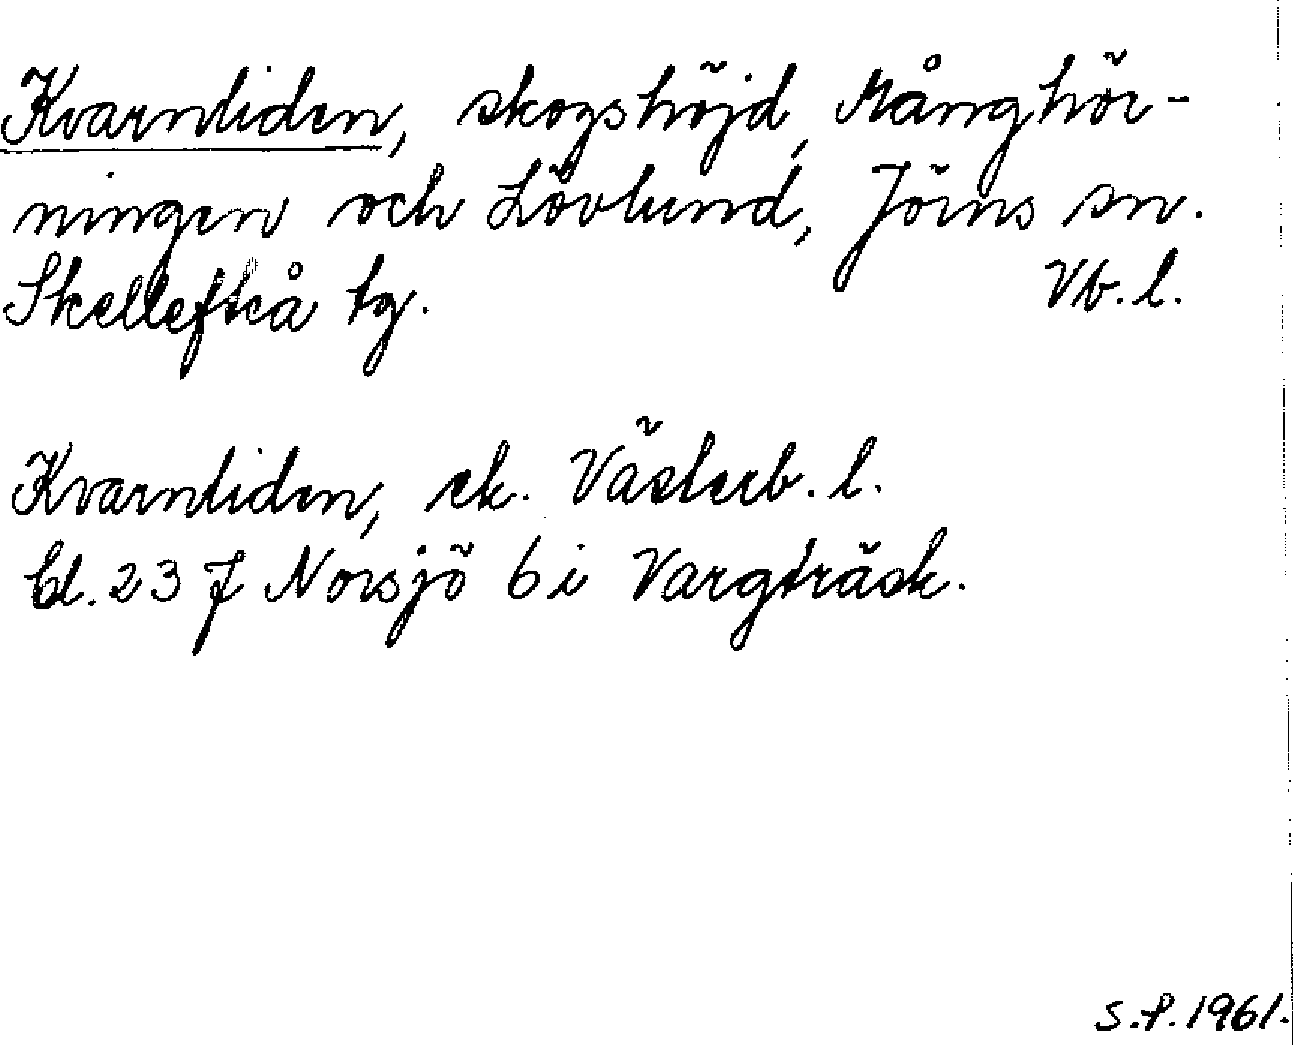 Kvarnliden, skogshöjd, Månghör-
ningen och Lövlund, Jörns sn.
Skellefteå tg. Vb. l.
Kvarnliden, ek. Västerb. l.
bl. 23 J Norsjö 6 i Vargträsk.
S.P. 1961.